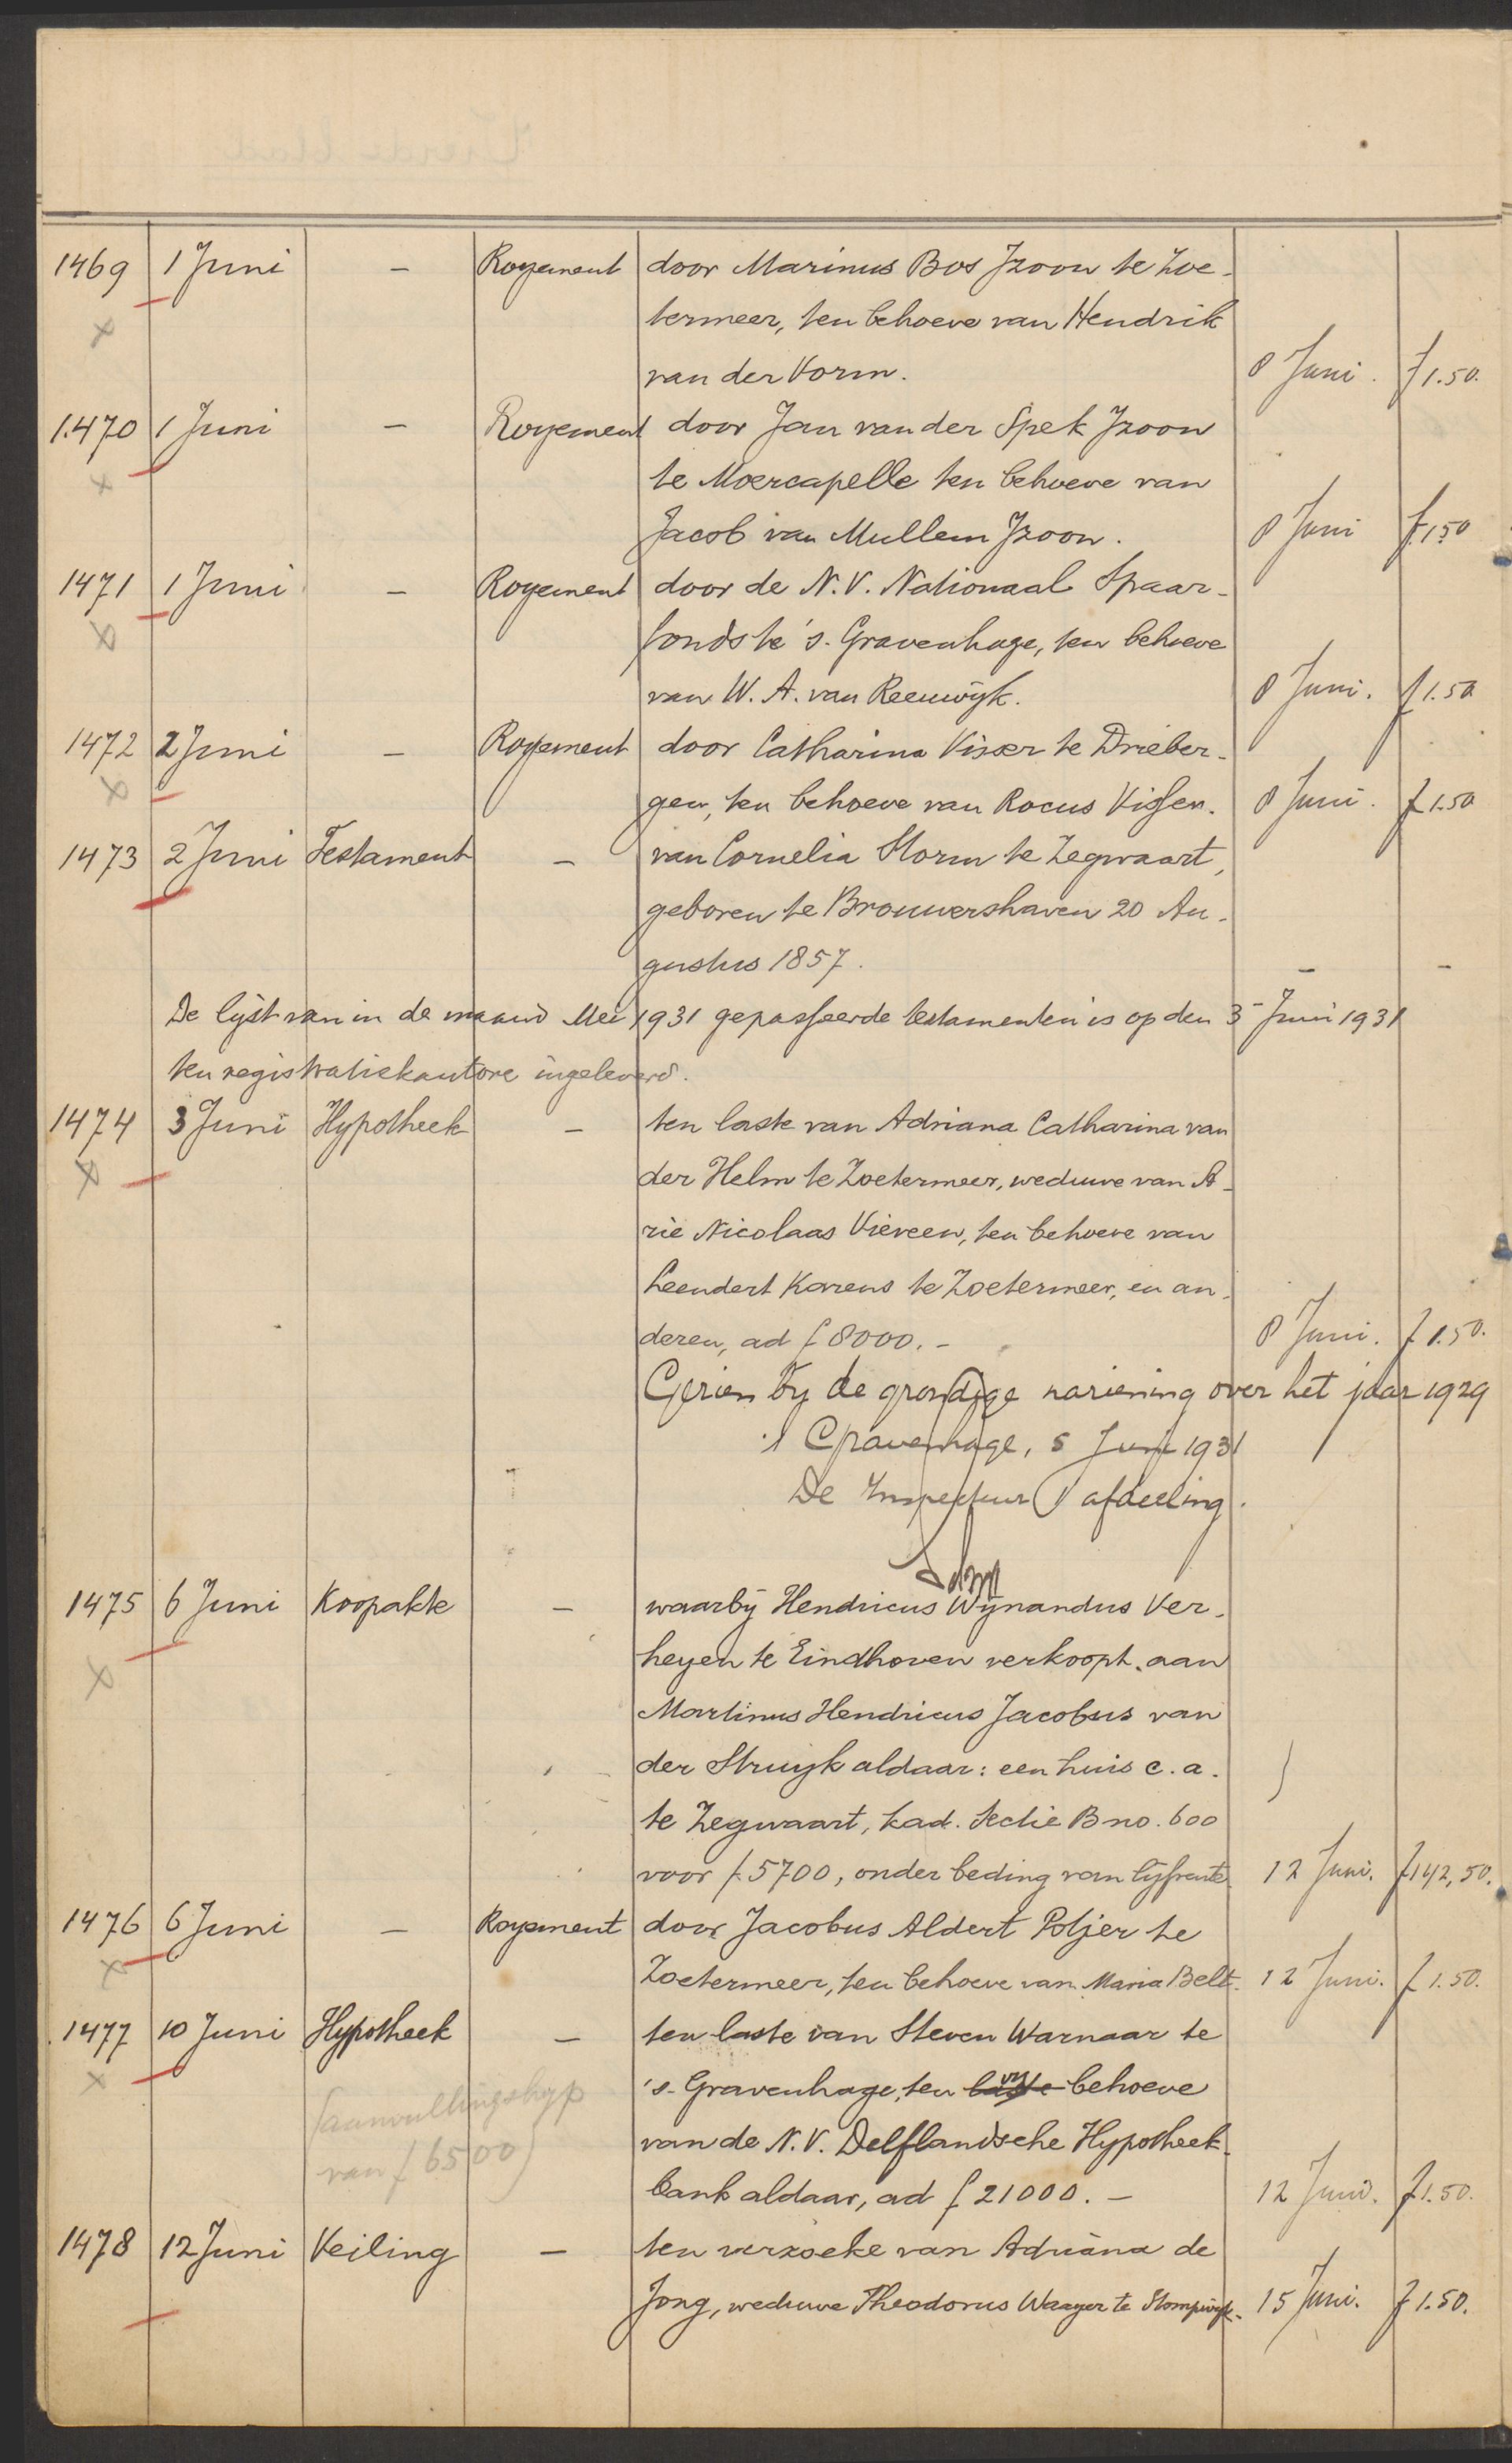 1469 1 Juni — Royement door Marinus Bos Jzoon te Zoe-
termeer, ten behoeve van Hendrik
van der Vorm. 8 Juni. f 1.50.
1470 1 Juni — Royement door Jan van der Spek Jzoon
te Moercapelle ten behoeve van
Jacob van Mullem Jzoon. 8 Juni f 1.50
1471 1 Juni — Royement door de N.V. Nationaal Spaar-
fonds te 's-Gravenhage, ten behoeve
van W. A. van Reeuwijk. 8 Juni. f 1.50
1472 2 Juni — Royement door Catharina Visser te Drieber-
gen, ten behoeve van Rocus Visser. 8 Juni. f 1.50
1473 2 Juni Testament — van Cornelia Storm te Zegwaart,
geboren te Brouwershaven 20 Au-
gustus 1857. — —
De lijst van in de maand Mei 1931 gepasseerde testamenten is op den 3 Juni 1931
ten registratiekantore ingeleverd.
1474 3 Juni Hypotheek — ten laste van Adriana Catharina van
der Helm te Zoetermeer, weduwe van A-
rie Nicolaas Viereen, ten behoeve van
Leendert Karens te Zoetermeer, en an-
deren, ad f 8000.— 8 Juni. f 1.50.
Gezien bij de grondige nariening over het jaar 1929
's Gravenhage, 5 Juni 1931
De Inspecteur 1e afdeeling.
1475 6 Juni Koopakte — waarbij Hendricus Wijnandus Ver-
heyen te Eindhoven verkoopt aan
Martinus Hendricus Jacobus van
der Struijk aldaar: een huis c.a.
te Zegwaart, kad. sectie B no. 600
voor f 5700, onder beding van lijfrente. 12 Juni. f 142,50.
1476 6 Juni — Royement door Jacobus Aldert Potjer te
Zoetermeer, ten behoeve van Maria Belt. 12 Juni. f 1.50.
1477 10 Juni Hypotheek — ten laste van Steven Warnaar te
's-Gravenhage, ten laste behoeve
(aanvullingshyp
van de N.V. Delflandsche Hypotheek-
van f 6500)
bank aldaar, ad f 21000.— 12 Juni. f 1.50.
1478 12 Juni Veiling — ten verzoeke van Adriana de
Jong, weduwe Theodorus Waayer te Stompwijk. 15 Juni. f 1.50.